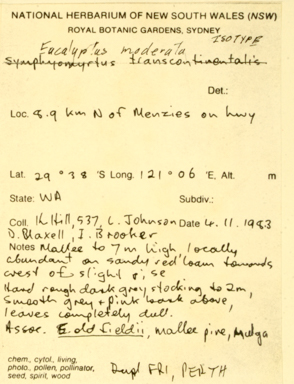 NATIONAL HERBARIUM OF NEW SOUTH WALES (NSW)
ROYAL BOTANIC GARDENS, SYDNEY
ISOTYPE
Eucalyptus moderata
Symphyomyrtus transcontinentalis
Det.:
Loc. 8.9 km N of Menzies on hwy
Lat. 29 ° 38 'S Long. 121 ° 06 'E, Alt. m
State: WA Subdiv.:
Coll. K Hill, 537, L. Johnson Date 4.11.1983
D. Blaxell, I. Brooker
Notes Mallee to 7m high, locally
abundant on sandy red loam towards
crest of slight rise
Hard rough dark grey stocking to 2m,
smooth grey + pink bark above,
leaves completely dull.
Assoc. E. oldfieldii, mallee pine, Mulga
chem., cytol., living,
photo., pollen, pollinator,
seed, spirit, wood
Dupl FRI, PERTH